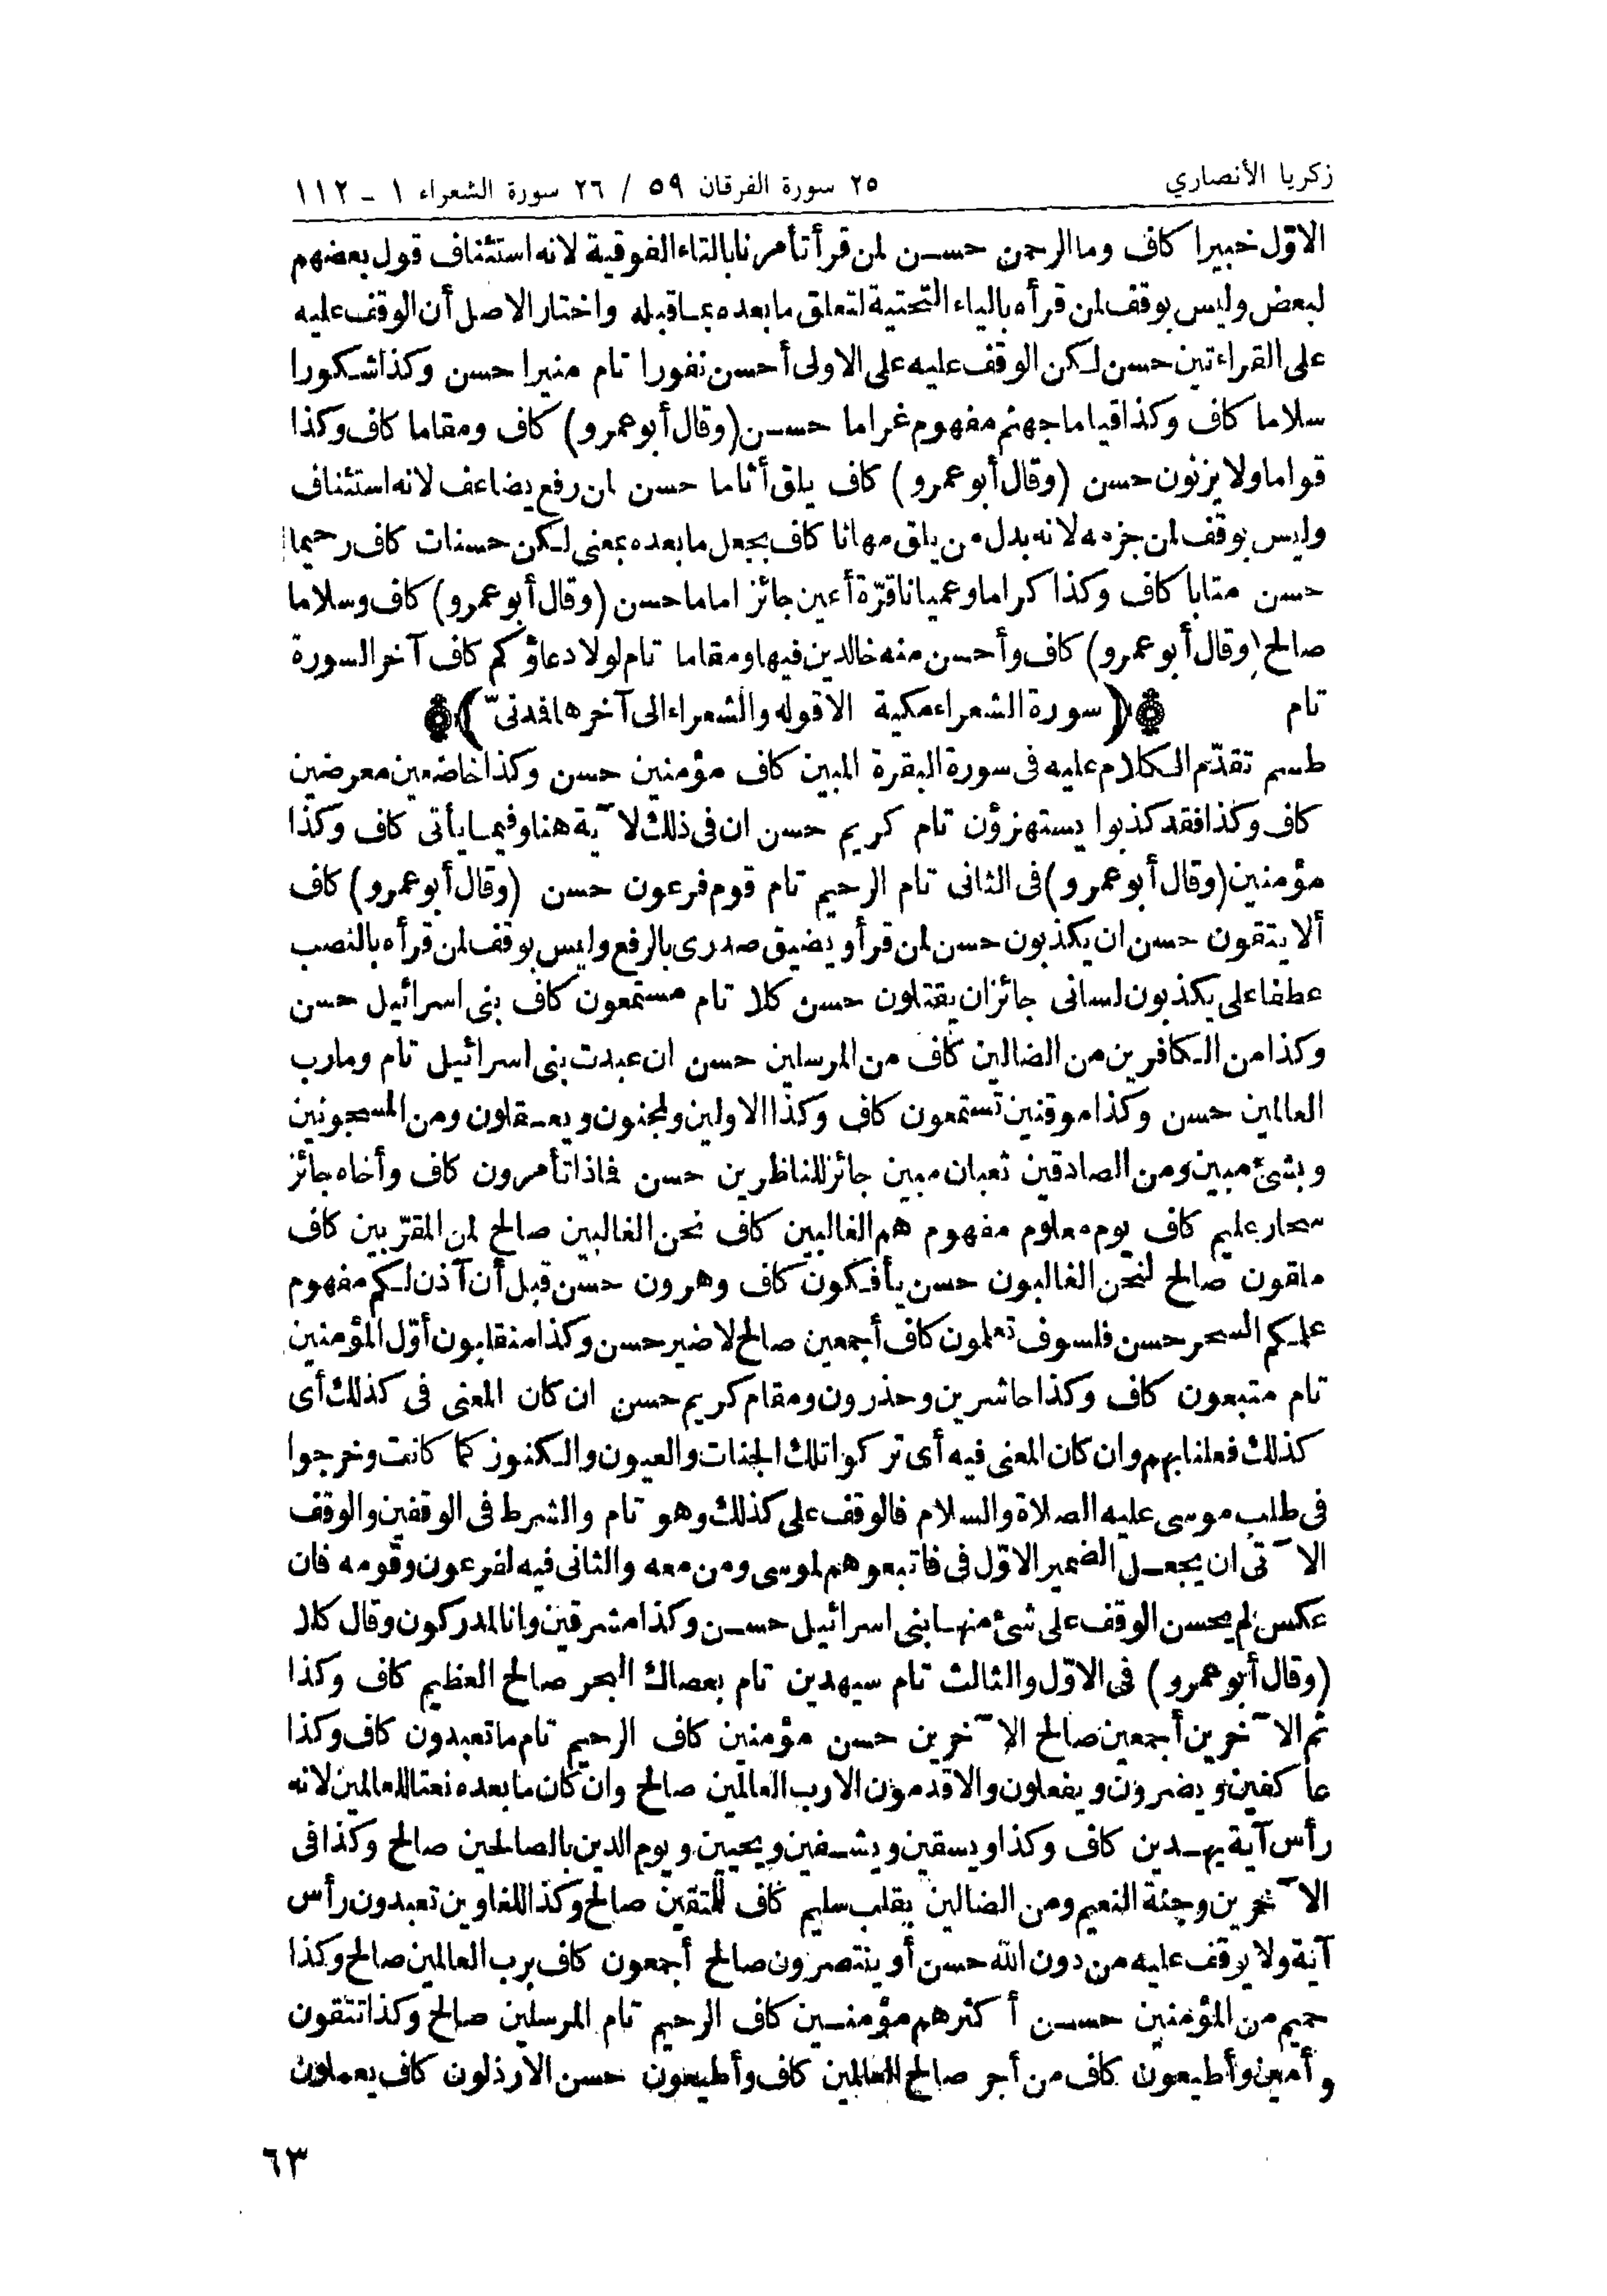 زكريا الأنصاري
٢٥ سورة الفرقان ٥٩ / ٢٦ سورة الشعراء ١ ـ ١١٢
الاوّل خبيرا كاف وما الرحمن حسن لمن قرأ تأمرنا بالتاء الفوقية لانه استئناف قول بعضهم
لبعض وليس بوقف لمن قرأه بالياء التحتية لتعلق ما بعده بما قبله واختار الاصل أن الوقف عليه
على القراءتين حسن لكن الوقف عليه على الاولى أحسن نفورا تام منيرا حسن وكذا شكورا
سلاما كاف وكذا قياما جهنم مفهوم غراما حسن (وقال أبو عمرو) كاف ومقاما كاف وكذا
قواما ولا يزنون حسن (وقال أبو عمرو) كاف يلق أثاما حسن لمن رفع يضاعف لانه استئناف
وليس بوقف لمن جزمه لانه بدل من يلق مهانا كاف بجعل ما بعده بمعنى لكن حسنات كاف رحيما
حسن متابا كاف وكذا كراما وعميانا قرّة أعين جائز اماما حسن (وقال أبو عمرو) كاف وسلاما
صالح (وقال أبو عمرو) كاف وأحسن منه خالدين فيها ومقاما تام لولا دعاؤكم كاف آخر السورة
تام (سورة الشعراء مكية الا قوله والشعراء الى آخرها فدنىّ)
طسم تقدّم الكلام عليه فى سورة البقرة المبين كاف مؤمنين حسن وكذا خاضعين معرضين
كاف وكذا فقد كذبوا يستهزؤن تام كريم حسن ان فى ذلك لآية هنا وفيما يأتى كاف وكذا
مؤمنين (وقال أبو عمرو) فى الثانى تام الرحيم تام قوم فرعون حسن (وقال أبو عمرو) كاف
ألا يتقون حسن ان يكذبون حسن لمن قرأ ويضيق صدرى بالرفع وليس بوقف لمن قرأه بالنصب
عطفا على يكذبون لسانى جائز ان يقتلون حسن كلا تام مستمعون كاف بنى اسرائيل حسن
وكذا من الكافرين من الضالين كاف من المرسلين حسن ان عبدت بنى اسرائيل تام وما رب
العالمين حسن وكذا موقنين تستمعون كاف وكذا الاولين ولمجنون ويعقلون ومن المسجونين
وبشئ مبين ومن الصادقين ثعبان مبين جائز للناظرين حسن فماذا تأمرون كاف وأخاه جائز
سحار عليم كاف يوم معلوم مفهوم هم الغالبين كاف نحن الغالبين صالح لمن المقرّبين كاف
ملقون صالح لنحن الغالبون حسن يأفكون كاف وهرون حسن قبل أن آذن لكم مفهوم
علمكم السحر حسن فلسوف تعلمون كاف أجمعين صالح لا ضير حسن وكذا منقلبون أوّل المؤمنين
تام متبعون كاف وكذا حاشرين وحذرون ومقام كريم حسن ان كان المعنى فى كذلك أى
كذلك فعلنا بهم وان كان المعنى فيه أى تركوا تلك الجنات والعيون والكنوز كما كانت وخرجوا
فى طلب موسى عليه الصلاة والسلام فالوقف على كذلك وهو تام والشرط فى الوقفين والوقف
الآتى ان يجعل الضمير الاوّل فى فاتبعوهم لموسى ومن معه والثانى فيه لفرعون وقومه فان
عكس لم يحسن الوقف على شئ منها بنى اسرائيل حسن وكذا مشرقين وانا لمدركون وقال كلا
(وقال أبو عمرو) فى الاوّل والثالث تام سيهدين تام بعصاك البحر صالح العظيم كاف وكذا
ثم الآخرين أجمعين صالح الآخرين حسن مؤمنين كاف الرحيم تام ما تعبدون كاف وكذا
عاكفين ويضرون ويفعلون والاقدمون الا رب العالمين صالح وان كان ما بعده نعتا للعالمين لانه
رأس آية يهدين كاف وكذا ويسقين ويشفين ويحيين ويوم الدين بالصالحين صالح وكذا فى
الآخرين وجنة النعيم ومن الضالين بقلب سليم كاف للمتقين صالح وكذا للغاوين تعبدون رأس
آية ولا يوقف عليه من دون الله حسن أو ينتصرون صالح أجمعون كاف برب العالمين صالح وكذا
حميم من المؤمنين حسن أكثرهم مؤمنين كاف الرحيم تام المرسلين صالح وكذا تتقون
وأمين وأطيعون كاف من أجر صالح العالمين كاف وأطيعون حسن الارذلون كاف يعملون
٦٣